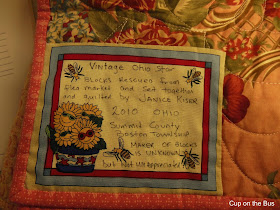 Vintage Ohio Star
Blocks Rescued from
flea market and Set together
and quilted by JANICE KISER
2010 OHIO
Summit County
Boston Township
MAKER OF BLOCKS
IS UNKNOWN
but Not Unappreciated
Cup on the Bus